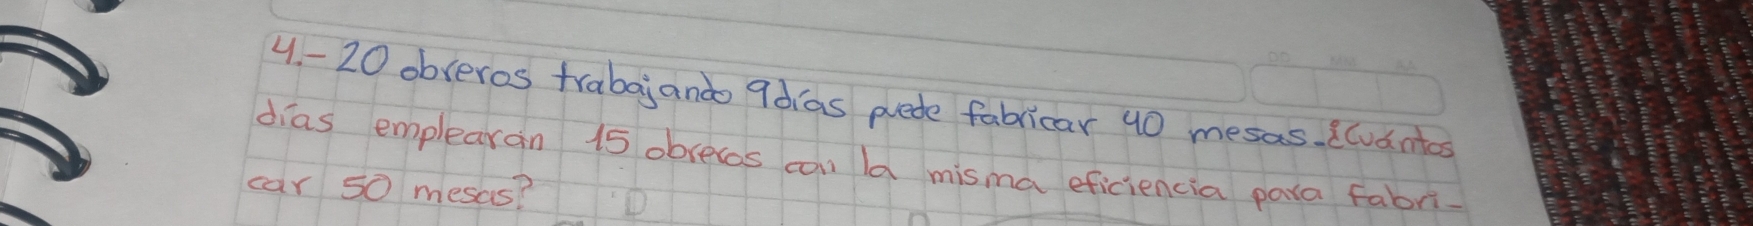 4.- 20 obreros trabajando 9 días puede fabricar 40 mesas. ¿Cuántos
días emplearán 15 obreros con la misma eficiencia para fabri-
car 50 mesas?